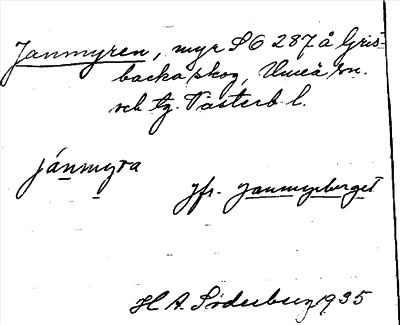 Janmyren, myr SO 287 å Gris-
backa skog, Umeå sn.
och tg. Västerb. l.
jánmyra
jfr. Janmyrberget
H A. Söderberg 1935